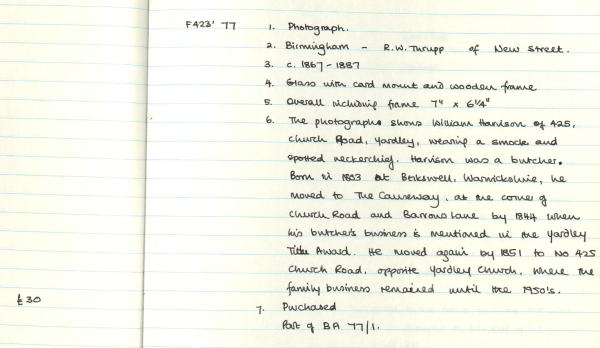 F423' 77 1. Photograph.
2. Birmingham - R.W. Thrupp of New Street.
3. c. 1867 - 1887
4. Glass with card mount and wooden frame
5. Overall including frame 7" x 6 1/4"
6. The photographs shows William Harrison of 425,
Church Road, Yardley, wearing a smock and
spotted neckerchief. Harrison was a butcher.
Born in 1803 at Berkswell, Warwickshire, he
moved to The Causeway, at the corner of
Church Road and Barrows Lane by 1844 when
his butcher's business is mentioned in the Yardley
Tithe Award. He moved again by 1851 to No 425
Church Road, opposite Yardley Church, where the
family business remained until the 1950's.
£30
7. Purchased
Part of BA 77/1.